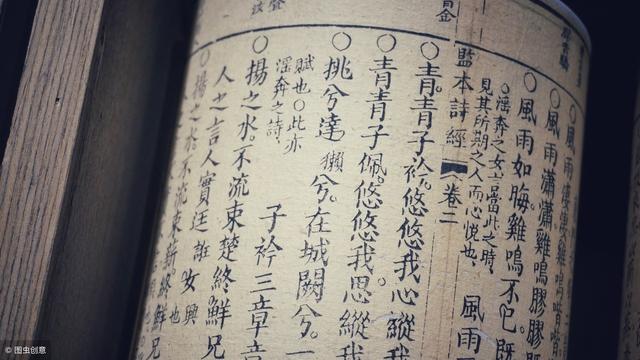 ○風雨淒淒雞鳴喈喈
○風雨瀟瀟雞鳴膠膠既
○風雨如晦雞鳴不已既
○淫奔之女言當此之時
見其所期之人而心悅也
風雨
監本詩經 卷二
○青青子衿。悠悠我心縱
○青青子佩。悠悠我思。縱我
○挑兮達獺兮。在城闕兮。一
賦也○此亦
淫奔之詩
子衿三章章
○揚之水。不流束楚終鮮兄
人之言人實迋誑女興也
○揚之水不流束薪終鮮兄
© 图虫创意